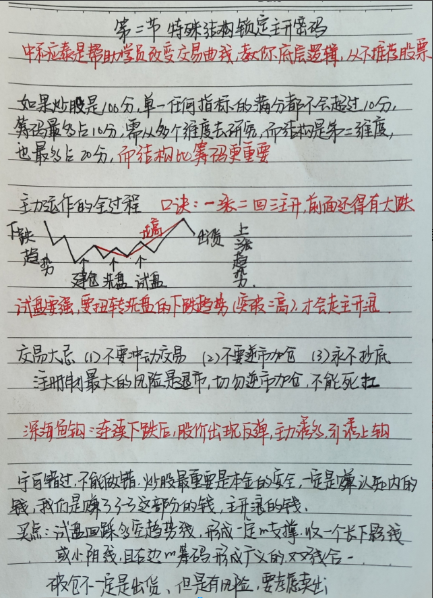 第二节 特殊结构锁定主升密码
中和应泰是帮助学员改变交易曲线,教你底层逻辑,从不推荐股票
如果炒股是100分,单一任何指标的满分都不会超过10分,
筹码最多占10分,需从多个维度去研究,而结构是第二维度,
也最多占20分,而结构比筹码更重要
主力运作的全过程 口诀:一涨二回三主升,前面还得有大跌
下跌趋势 过高 出货 上涨趋势
建仓 洗盘 试盘
试盘要强,要扭转洗盘的下跌趋势(突破二高),才会走主升浪
交易大忌 (1)不要冲动交易 (2)不要逆市加仓 (3)永不抄底
注册制最大的风险是退市,切勿逆市加仓,不能死扛
深海鱼钩:连续下跌后,股价出现反弹,主力诱多,引诱上钩
宁可错过,不能做错.炒股最重要是本金的安全,一定是赚认知内的
钱,我们是赚了335这部分的钱,主升浪的钱.
买点:试盘回踩多空趋势线,形成一定的支撑,收一个长下影线
或小阴线,且右边的筹码形成广义的双线合一
破仓不一定是出货、但是有风险,要考虑卖出